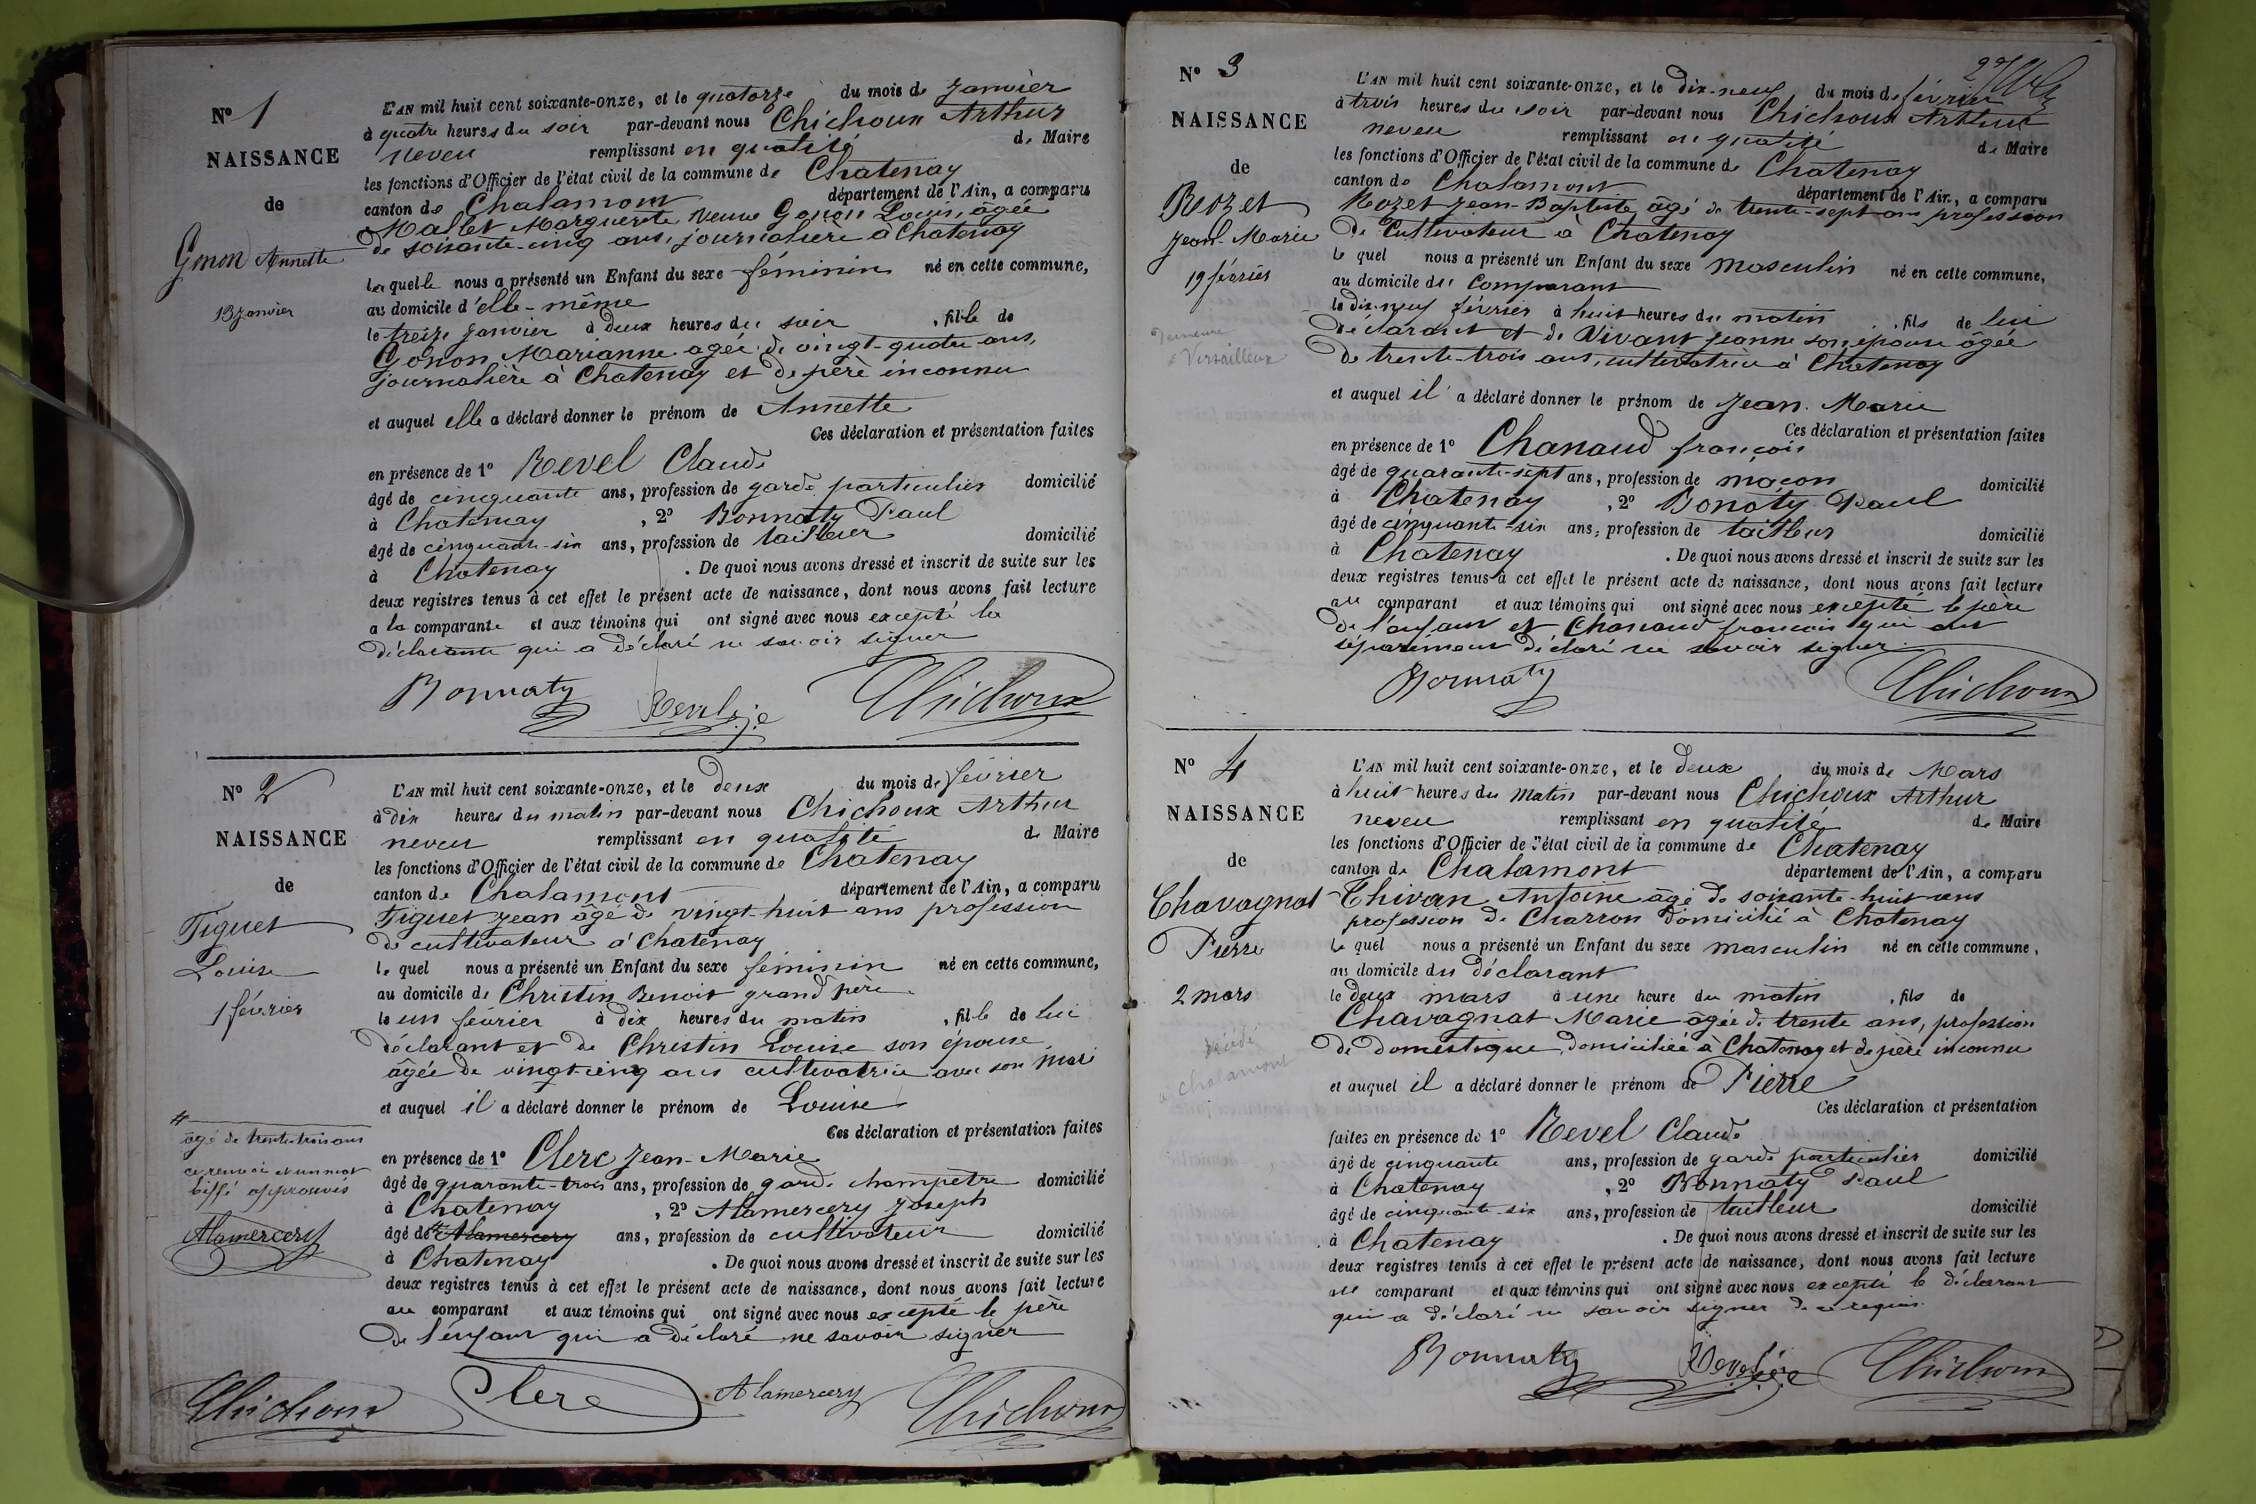 N° 1
NAISSANCE
de
Gonon Annette
13 janvier
L'AN mil huit cent soixante-onze, et le quatorze du mois de janvier
à quatre heures du soir par-devant nous Chichoux Arthur
neveu remplissant en qualité de Maire
les fonctions d'Officier de l'état civil de la commune de Chatenay
canton de Chalamont département de l'Ain, a comparu
Mallet Marguerite veuve Gonon Louis, âgée
de soixante-cinq ans, journalière à Chatenay
laquelle nous a présenté un Enfant du sexe féminin né en cette commune,
au domicile d'elle-même
le treize janvier à deux heures du soir, fille de
Gonon Marianne agée de vingt-quatre ans,
journalière à Chatenay et de père inconnu
et auquel elle a déclaré donner le prénom de Annette
Ces déclaration et présentation faites
en présence de 1° Revel Claude
âgé de cinquante ans, profession de garde particulier domicilié
à Chatenay, 2° Bonnaty Paul
âgé de cinquante-six ans, profession de tailleur domicilié
à Chatenay. De quoi nous avons dressé et inscrit de suite sur les
deux registres tenus à cet effet le présent acte de naissance, dont nous avons fait lecture
a la comparante et aux témoins qui ont signé avec nous excepté la
déclarante qui a déclaré ne savoir signer
Bonnaty Revel Chichoux
N° 2
NAISSANCE
de
Figuet
Louise
1 février
âgé de trente-trois ans
ce renvoi et un mot
biffé approuvés
Alamercery
L'AN mil huit cent soixante-onze, et le deux du mois de février
à dix heures du matin par-devant nous Chichoux Arthur
neveu remplissant en qualité de Maire
les fonctions d'Officier de l'état civil de la commune de Chatenay
canton de Chalamont département de l'Ain, a comparu
Figuet Jean âgé de vingt-huit ans profession
de cultivateur à Chatenay
lequel nous a présenté un Enfant du sexe féminin né en cette commune,
au domicile de Christin Benoit grand père
le un février à dix heures du matin, fille de lui
déclarant et de Christin Louise son épouse
âgée de vingt-cinq ans cultivatrice avec son mari
et auquel il a déclaré donner le prénom de Louise
Ces déclaration et présentation faites
en présence de 1° Clerc Jean-Marie
âgé de quarante-trois ans, profession de garde champêtre domicilié
à Chatenay, 2° Alamercery Joseph
âgé de Alamercery ans, profession de cultivateur domicilié
à Chatenay. De quoi nous avons dressé et inscrit de suite sur les
deux registres tenus à cet effet le présent acte de naissance, dont nous avons fait lecture
au comparant et aux témoins qui ont signé avec nous excepté le père
de l'enfant qui a déclaré ne savoir signer
Chichoux Clerc Alamercery Chichoux
N° 3
NAISSANCE
de
Rozet
Jean-Marie
19 février
Demeure
à Versailleux
L'AN mil huit cent soixante-onze, et le dix-neuf du mois de février
à trois heures du soir par-devant nous Chichoux Arthur
neveu remplissant en qualité de Maire
les fonctions d'Officier de l'état civil de la commune de Chatenay
canton de Chalamont département de l'Ain, a comparu
Rozet Jean-Baptiste âgé de trente-sept ans profession
de Cultivateur à Chatenay
lequel nous a présenté un Enfant du sexe masculin né en cette commune,
au domicile du Comparant
le dix-neuf février à huit heures du matin, fils de lui
déclarant et de Vivant Jeanne son épouse âgée
de trente-trois ans, cultivatrice à Chatenay
et auquel il a déclaré donner le prénom de Jean-Marie
Ces déclaration et présentation faites
en présence de 1° Chanaud françois
âgé de quarante-sept ans, profession de maçon domicilié
à Chatenay, 2° Bonaty Paul
âgé de cinquante-six ans, profession de tailleur domicilié
à Chatenay. De quoi nous avons dressé et inscrit de suite sur les
deux registres tenus à cet effet le présent acte de naissance, dont nous avons fait lecture
au comparant et aux témoins qui ont signé avec nous excepté le père
de l'enfant et Chanaud francois qui ont
séparement déclaré ne savoir signer
Bonnaty Chichoux
N° 4
NAISSANCE
de
Chavagnat
Pierre
2 mars
décédé
a Chalamont
L'AN mil huit cent soixante-onze, et le deux du mois de Mars
à huit heures du Matin par-devant nous Chichoux Arthur
neveu remplissant en qualité de Maire
les fonctions d'Officier de l'état civil de la commune de Chatenay
canton de Chalamont département de l'Ain, a comparu
Thivan Antoine âgé de soixante-huit ans
profession de Charron domicilié à Chatenay
lequel nous a présenté un Enfant du sexe masculin né en cette commune,
au domicile du déclarant
le deux mars à une heure du matin, fils de
Chavagnat Marie âgée de trente ans, profession
de domestique, domiciliée à Chatenay et de père inconnu
et auquel il a déclaré donner le prénom de Pierre
Ces déclaration et présentation
faites en présence de 1° Revel Claude
âgé de cinquante ans, profession de garde particulier domicilié
à Chatenay, 2° Bonnaty Paul
âgé de cinquante-six ans, profession de tailleur domicilié
à Chatenay. De quoi nous avons dressé et inscrit de suite sur les
deux registres tenus à cet effet le présent acte de naissance, dont nous avons fait lecture
au comparant et aux témoins qui ont signé avec nous excepté le déclarant
qui a déclaré ne savoir signer de ce requis
Bonnaty Revel Chichoux